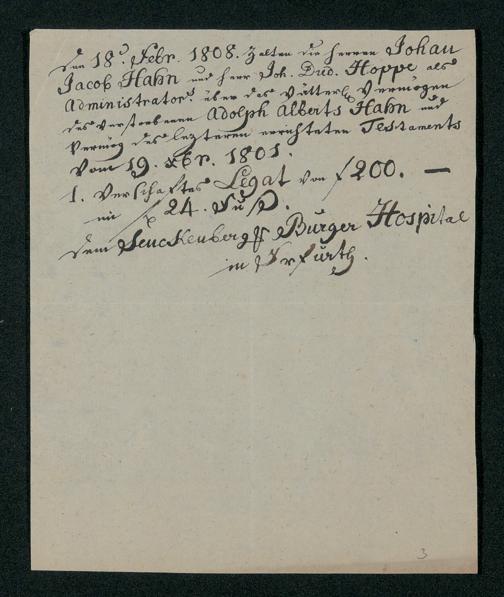 Den 18 Febr. 1808. Zalten die Herren Johan
Jacob Hahn und Herr Joh. Dud. Hoppe als
Administrator über das Vätterl. Vermögen
des verstorbenen Adolph Alberts Hahn und
Vermög des lezteren errichteten Testaments
Vom 19. 1801.
1. Verschaftes Legat von f 200. —
im f 24.
dem Senckenberg Burger Hospital
in
3